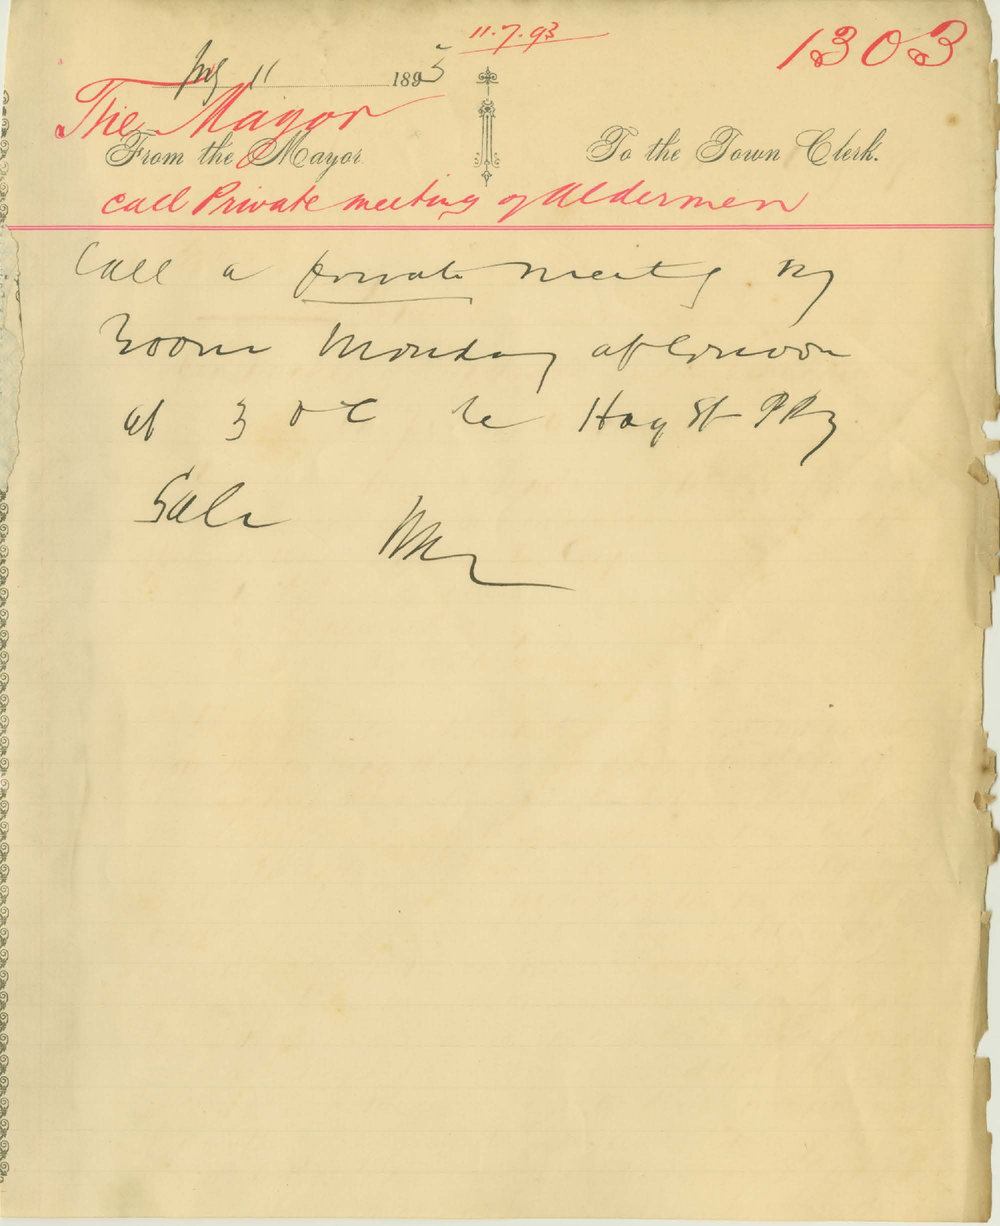 11.7.93
1303
July 11 1893
The Mayor
From the Mayor To the Town Clerk.
call Private meeting of Aldermen
Call a private meeting my
Room Monday afternoon
at 3 oC re Hay St Ppty
Sale